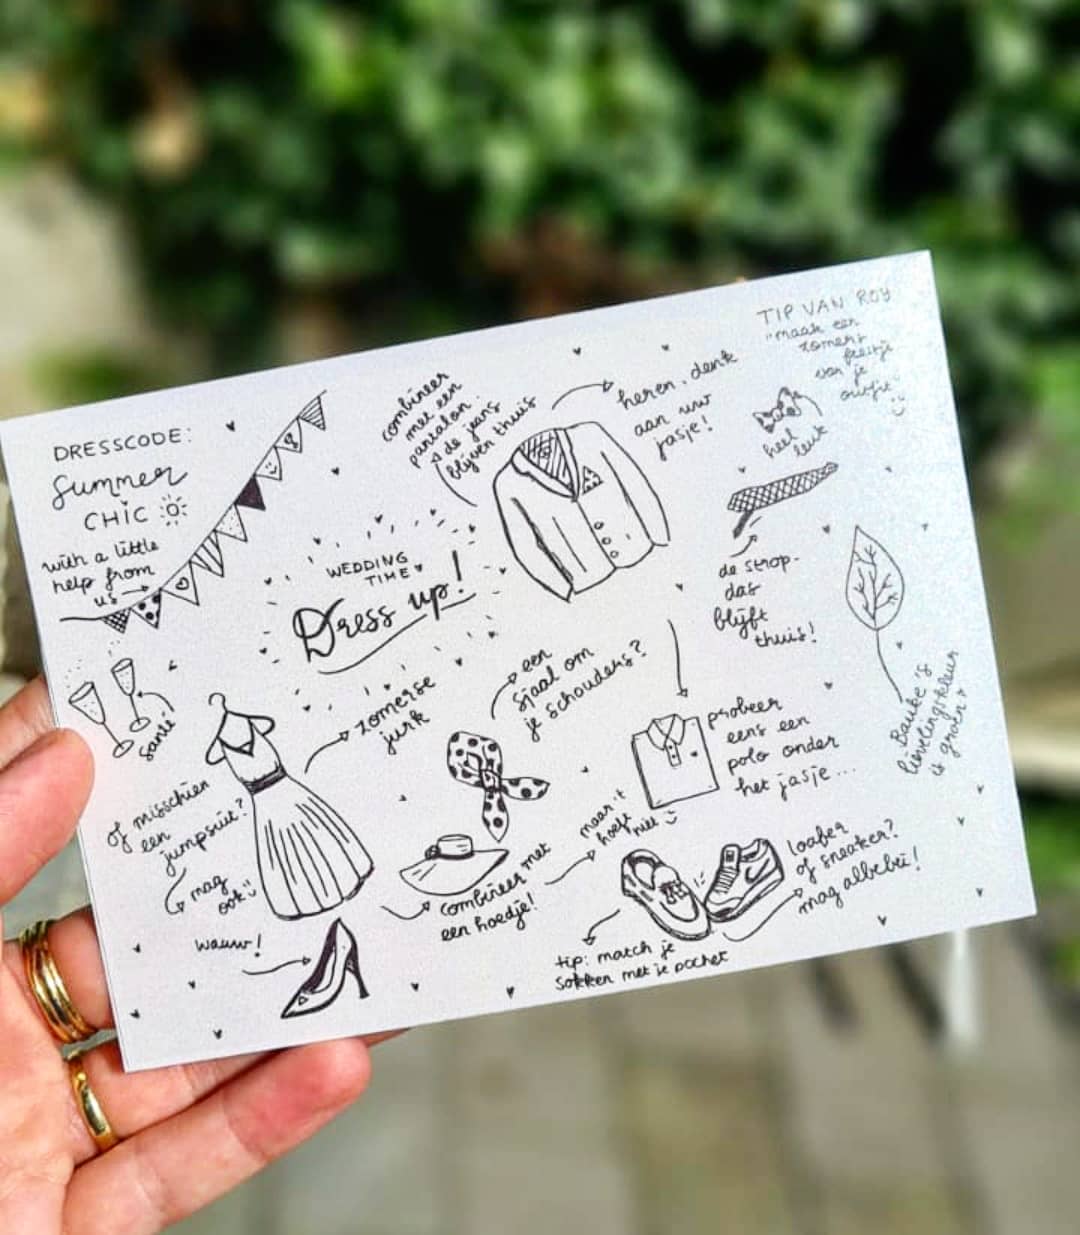 DRESSCODE:
summer
CHIC
with a little
help from
us
santé
WEDDING
TIME
Dress up!
combineer
met een
pantalon.
de jeans
blijven thuis
heren, denk
aan uw
jasje!
TIP VAN ROY
"maak een
zomers
feestje
van je
outfit"
heel
leuk
de strop-
das
blijft
thuis!
Bauke's
lievelingskleur
is groen
zomerse
jurk
of misschien
een
jumpsuit?
mag
ook
wauw!
een
sjaal om
je schouders?
combineer met
een hoedje!
maar 't
hoeft
niet
probeer
eens een
polo onder
het jasje...
loafer
of sneaker?
mag allebei!
tip: match je
sokken met je pochet